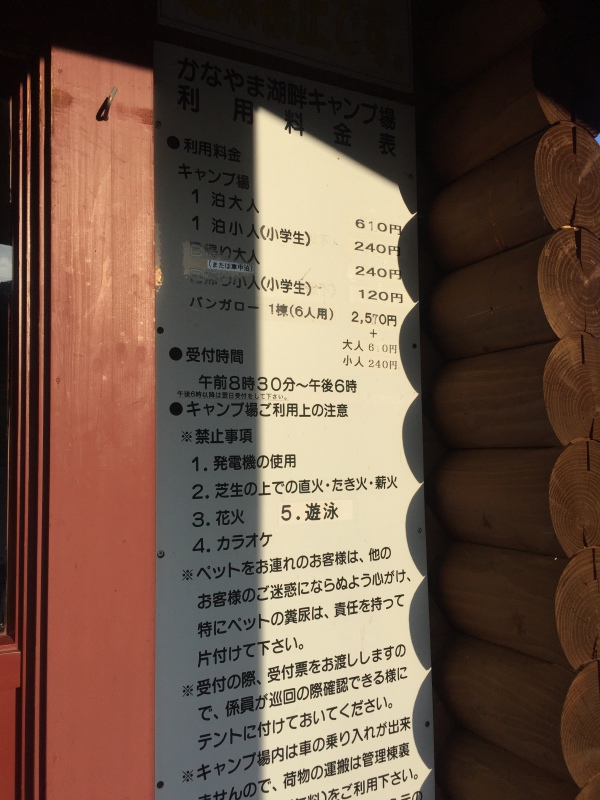 かなやま湖畔キャンプ場
利用料金表
●利用料金
キャンプ場
1泊大人 610円
1泊小人(小学生) 240円
帰り大人 240円
(または車中泊)
帰り小人(小学生) 120円
バンガロー 1棟(6人用) 2,570円
+
大人 6 0円
小人 240円
●受付時間
午前8時30分～午後6時
午後6時以降は翌日受付をして下さい。
●キャンプ場ご利用上の注意
※禁止事項
1.発電機の使用
2.芝生の上での直火・たき火・薪火
3.花火 5.遊泳
4.カラオケ
※ペットをお連れのお客様は、他の
お客様のご迷惑にならぬよう心がけ、
特にペットの糞尿は、責任を持って
片付けて下さい。
※受付の際、受付票をお渡ししますの
で、係員が巡回の際確認できる様に
テントに付けておいてください。
※キャンプ場内は車の乗り入れが出来
ませんので、荷物の運搬は管理棟裏
無料)をご利用下さい。